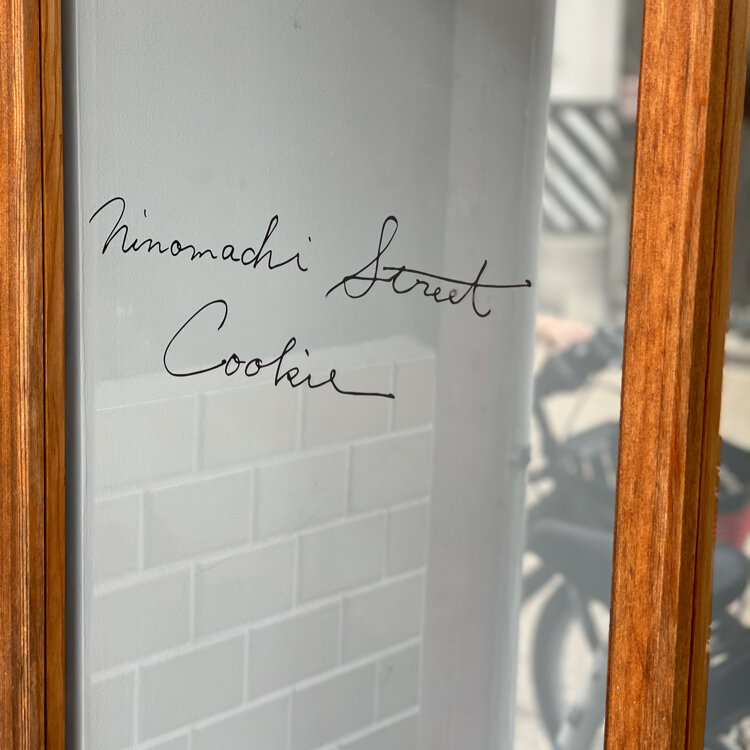 Ninomachi Street
Cookie